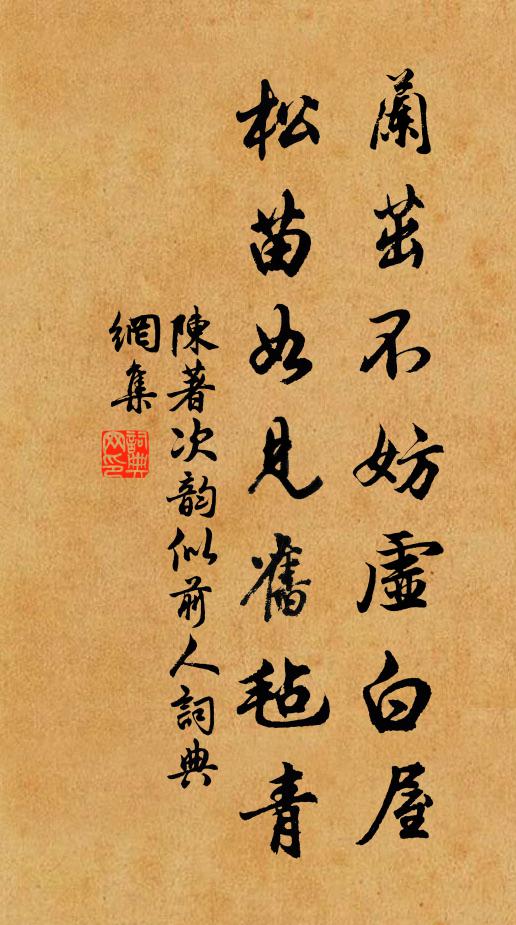 蘭茁不妨虛白屋
松苗如見舊毡青
陳著次韵似前人詞典
網集
詞典
网印